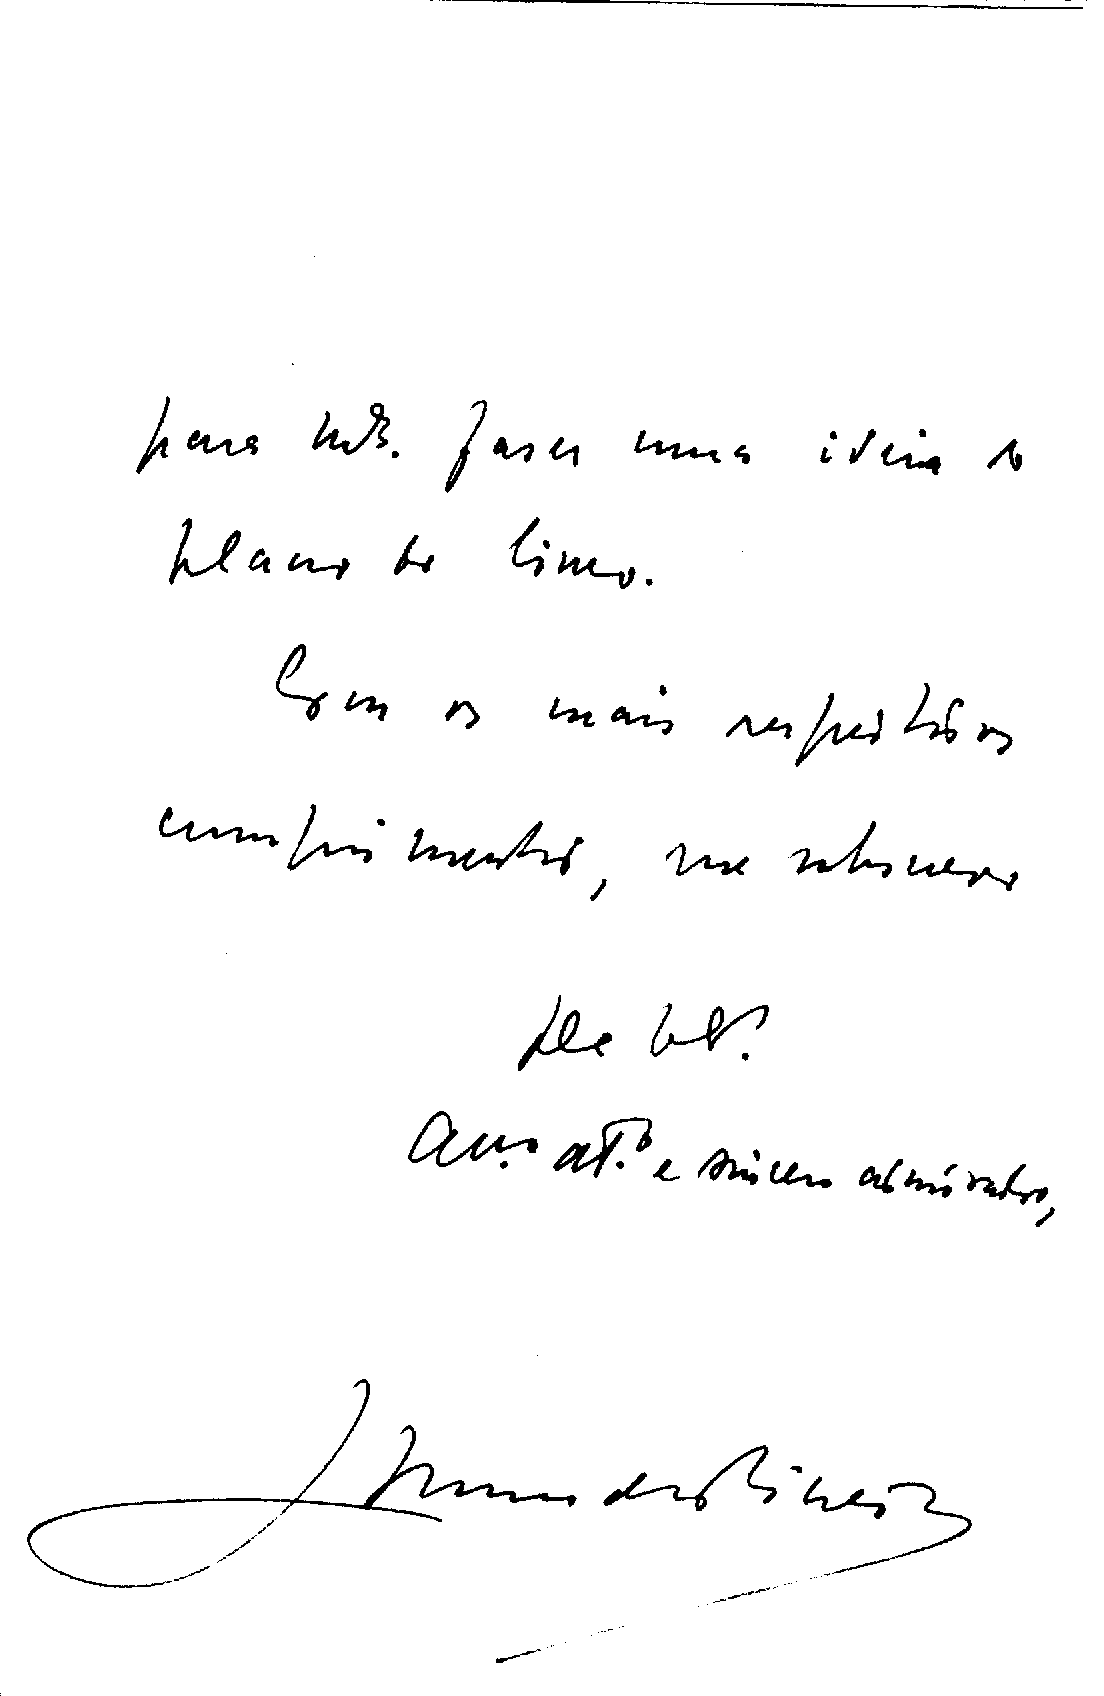 para V.S. fazer uma ideia do
plano do livro.
Com os mais respeitosos
cumprimentos, me subscrevo
de V.S.
Am.o at.o e sincero admirador,